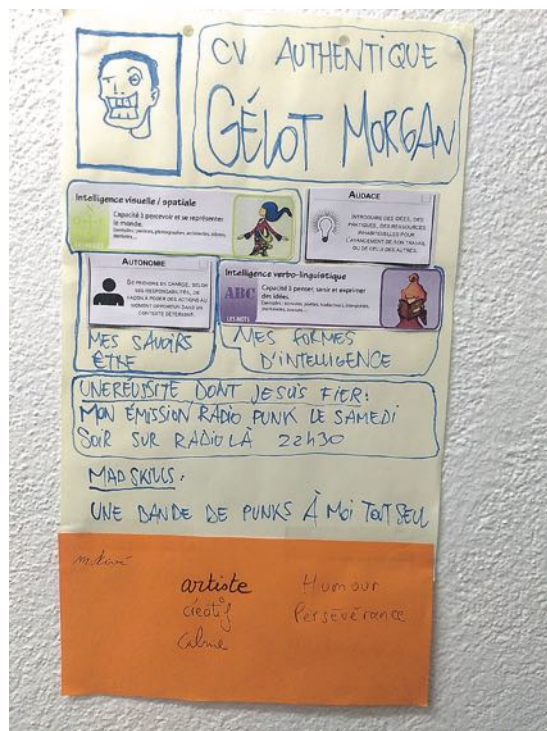 CV AUTHENTIQUE
GÉLOT MORGAN
Intelligence visuelle / spatiale
Capacité à percevoir et se représenter
le monde.
AUDACE
INTRODUIRE DES IDÉES, DES
PRATIQUES, DES RESSOURCES
INHABITUELLES POUR
L'AVANCEMENT DE SON TRAVAIL
OU DE CELUI DES AUTRES.
AUTONOMIE
SE PRENDRE EN CHARGE, SELON
SES RESPONSABILITÉS, DE
FAÇON À POSER DES ACTIONS AU
MOMENT OPPORTUN DANS UN
CONTEXTE DÉTERMINÉ.
Intelligence verbo-linguistique
ABC
Capacité à penser, saisir et exprimer
des idées.
LES MOTS
MES SAVOIRS
ÊTRE
MES FORMES
D'INTELLIGENCE
UNE RÉUSSITE DONT JE SUIS FIER:
MON ÉMISSION RADIO PUNK LE SAMEDI
SOIR SUR RADIO LÀ 22H30
MAD SKILLS:
UNE BANDE DE PUNKS À MOI TOUT SEUL
motivé
artiste
Humour
créatif
Persévérance
Calme